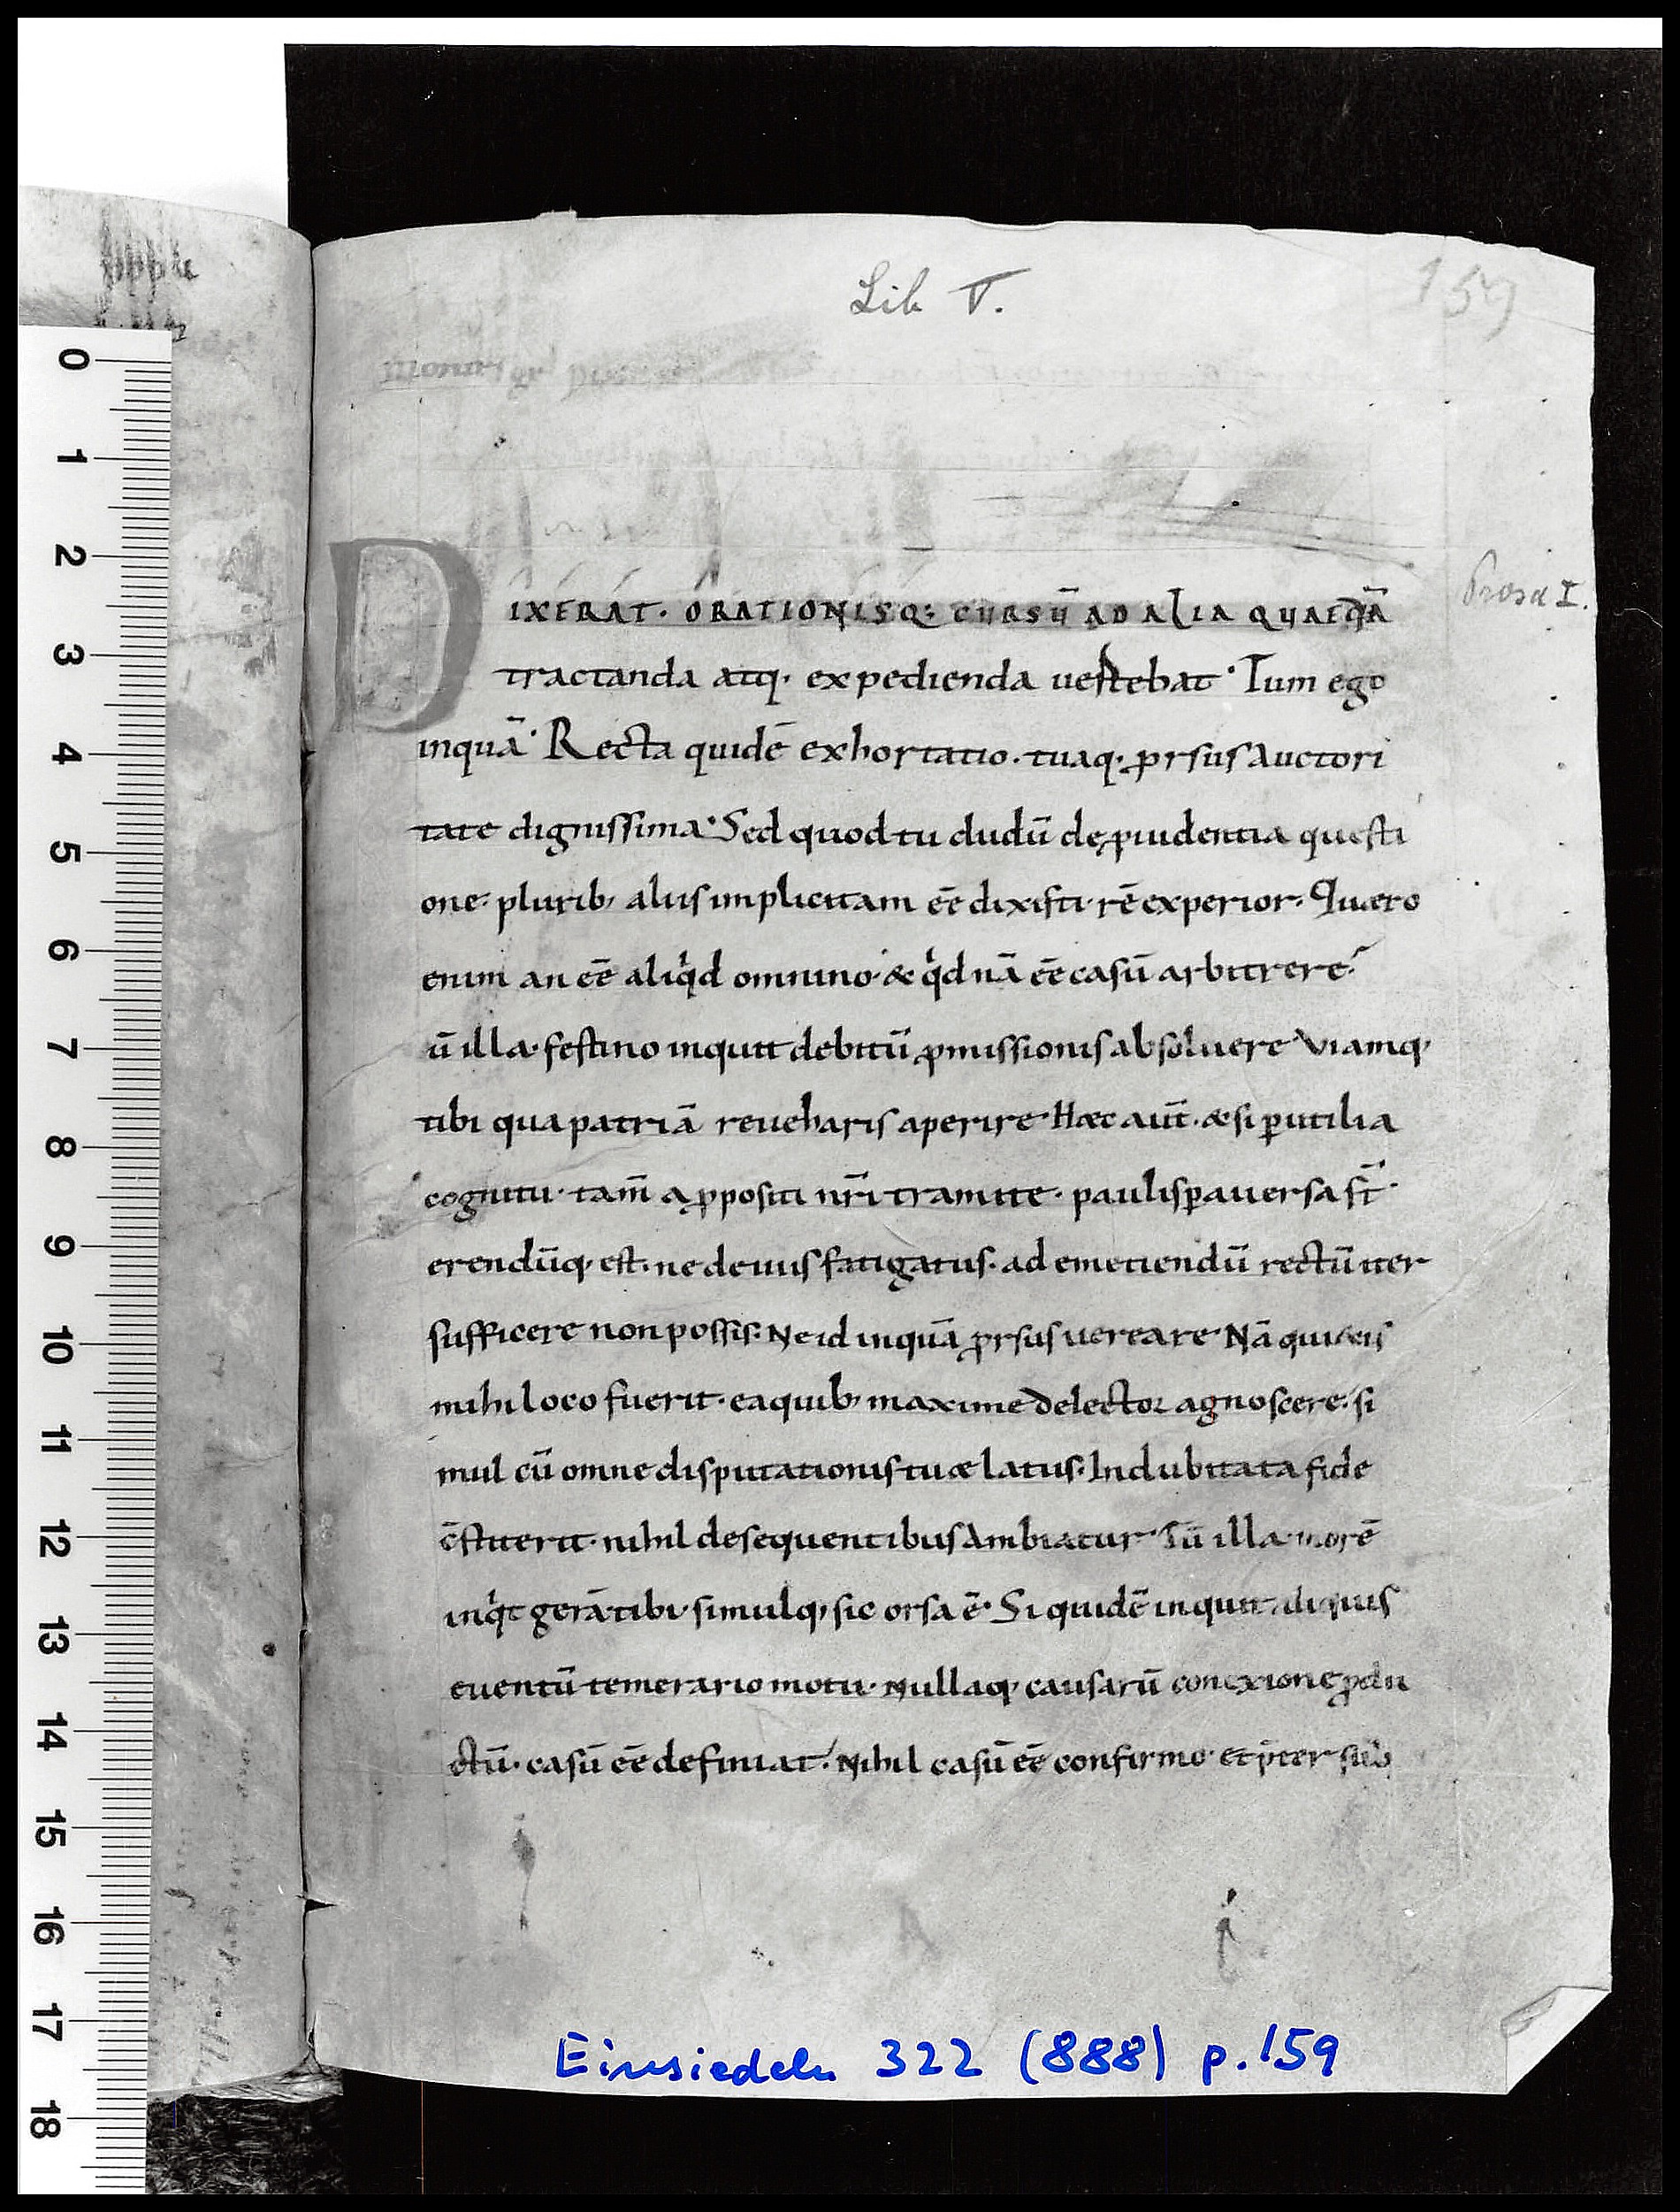 Lib V.
159
Prosa I.
DIXERAT. ORATIONISQ: CURSŪ AD ALIA QUAEDĀ
tractanda atq. expedienda vertebat. Tum ego
inquā. Recta quidē exhortatio. tuaq. ꝓrsus auctori
tate dignissima. Sed quod tu dudū de ꝓuidentia questi
one. plurib; aliis implicitam eē dixisti. rē experior. Quæro
enim an eē aliqͥd omnino. & qͥd nā eē casū arbitrere.
ū illa. festino inquit debitū ꝓmissionis absoluere. viamq;
tibi qua patriā reueharis aperire. Hæc aūt. & si ꝑutilia
cognitu. tam̄ a ꝓpositi nr̄i tramite. paulisꝑ auersa st̄.
erendūq; est. ne deuiis fatigatus. ad emetiendū rectū iter
sufficere non possis. Ne id inquā ꝓrsus uereare. Nā quietis
mihi loco fuerit. ea quib; maxime delector agnoscere. si
mul cū omne disputationis tuæ latus. Indubitata fide
c̄stiterit. nihil de sequentibus ambiatur. Tū illa. morē
inqͥt gerā tibi. simulq; sic orsa ē. Si quidē inquit aliquis
euentū temerario motu. Nullaq; causarū conexione ꝓdu
ctū. casū eē definiat. Nihil casū eē confirmo. et p̄ter sub
Einsiedeln 322 (888) p.159